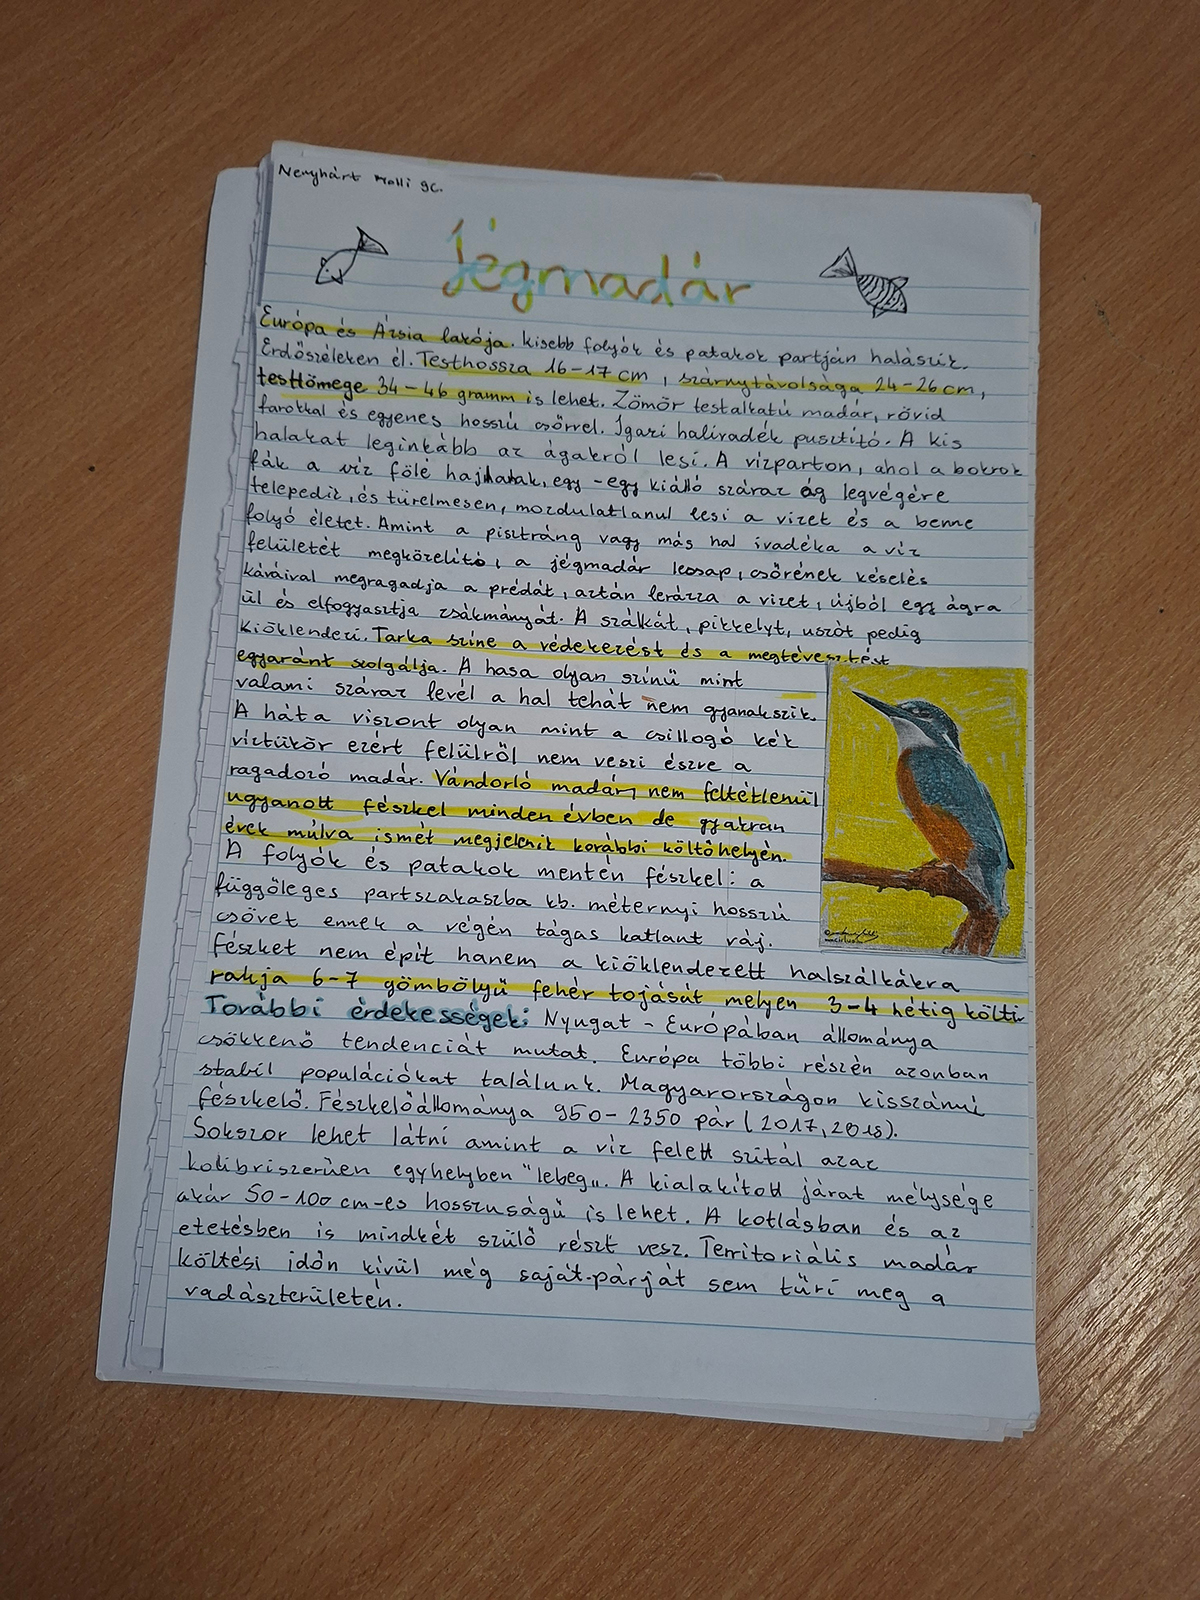 Nenyhárt Molli 9c.
Jégmadár
Európa és Ázsia lakója. kisebb folyók és patakok partján halászik.
Erdőszéleken él. Testhossza 16-17 cm, szárnytávolsága 24-26 cm,
testtömege 34-46 gramm is lehet. Zömör testalkatú madár, rövid
farokkal és egyenes hosszú csőrrel. Igazi halivadék pusztító. A kis
halakat leginkább az ágakról lesi. A vízparton, ahol a bokrok
fák a víz fölé hajlhatak, egy-egy kiálló száraz ág legvégére
telepedik, és türelmesen, mozdulatlanul lesi a vizet és a benne
folyó életet. Amint a pisztráng vagy más hal ivadéka a víz
felületét megközelíti, a jégmadár lecsap, csőrének késelés
káváival megragadja a prédát, aztán lerázza a vizet, újból egy ágra
ül és elfogyasztja zsákmányát. A szálkát, pikkelyt, uszót pedig
kiöklendezi. Tarka színe a védekezést és a megtévesztést
egyaránt szolgálja. A hasa olyan színű mint
valami száraz levél a hal tehát nem gyanakszik.
A háta viszont olyan mint a csillogó kék
víztükör ezért felülről nem veszi észre a
ragadozó madár. Vándorló madár, nem feltétlenül
ugyanott fészkel minden évben de gyakran
évek múlva ismét megjelenik korábbi költőhelyén.
A folyók és patakok mentén fészkel: a
függőleges partszakaszba kb. méternyi hosszú
csövet ennek a végén tágas katlant váj.
Fészket nem épít hanem a kiöklendezett halszálkákra
rakja 6-7 gömbölyű fehér tojását melyen 3-4 hétig költi
További érdekességek: Nyugat-Európában állománya
csökkenő tendenciát mutat. Európa többi részén azonban
stabil populációkat találunk. Magyarországon kisszámú
fészkelő. Fészkelőállománya 950-2350 pár (2017, 2018).
Sokszor lehet látni amint a víz felett szitál azaz
kolibriszerűen egyhelyben "lebeg". A kialakított járat mélysége
akár 50-100 cm-es hosszuságű is lehet. A kotlásban és az
etetésben is mindkét szülő részt vesz. Territoriális madár
költési időn kívül még saját párját sem tűri meg a
vadászterületén.